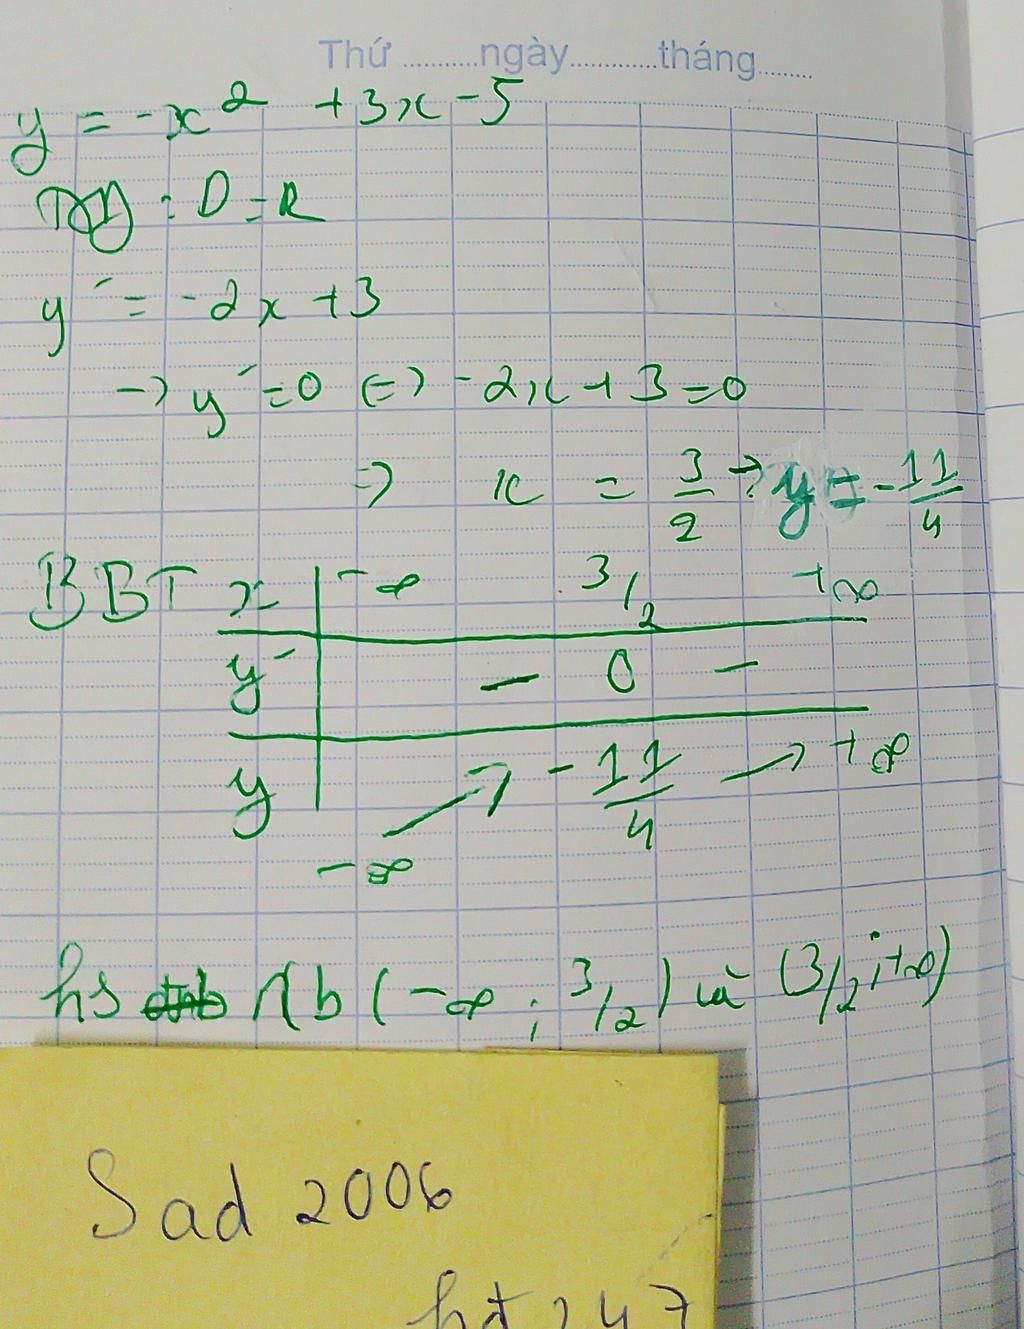 Thứ ..........ngày............tháng........
y = -x² + 3x - 5
TXĐ : D = R
y' = -2x + 3
→ y' = 0 ⇔ -2x + 3 = 0
⇒ x = 3/2 → y = -11/4
BBT x | -∞ 3/2 +∞
y' | - 0 -
y | -∞ ↗ -11/4 → +∞
hs Nb (-∞ ; 3/2) và (3/2 ; +∞)
Sad 2006
hđ 247